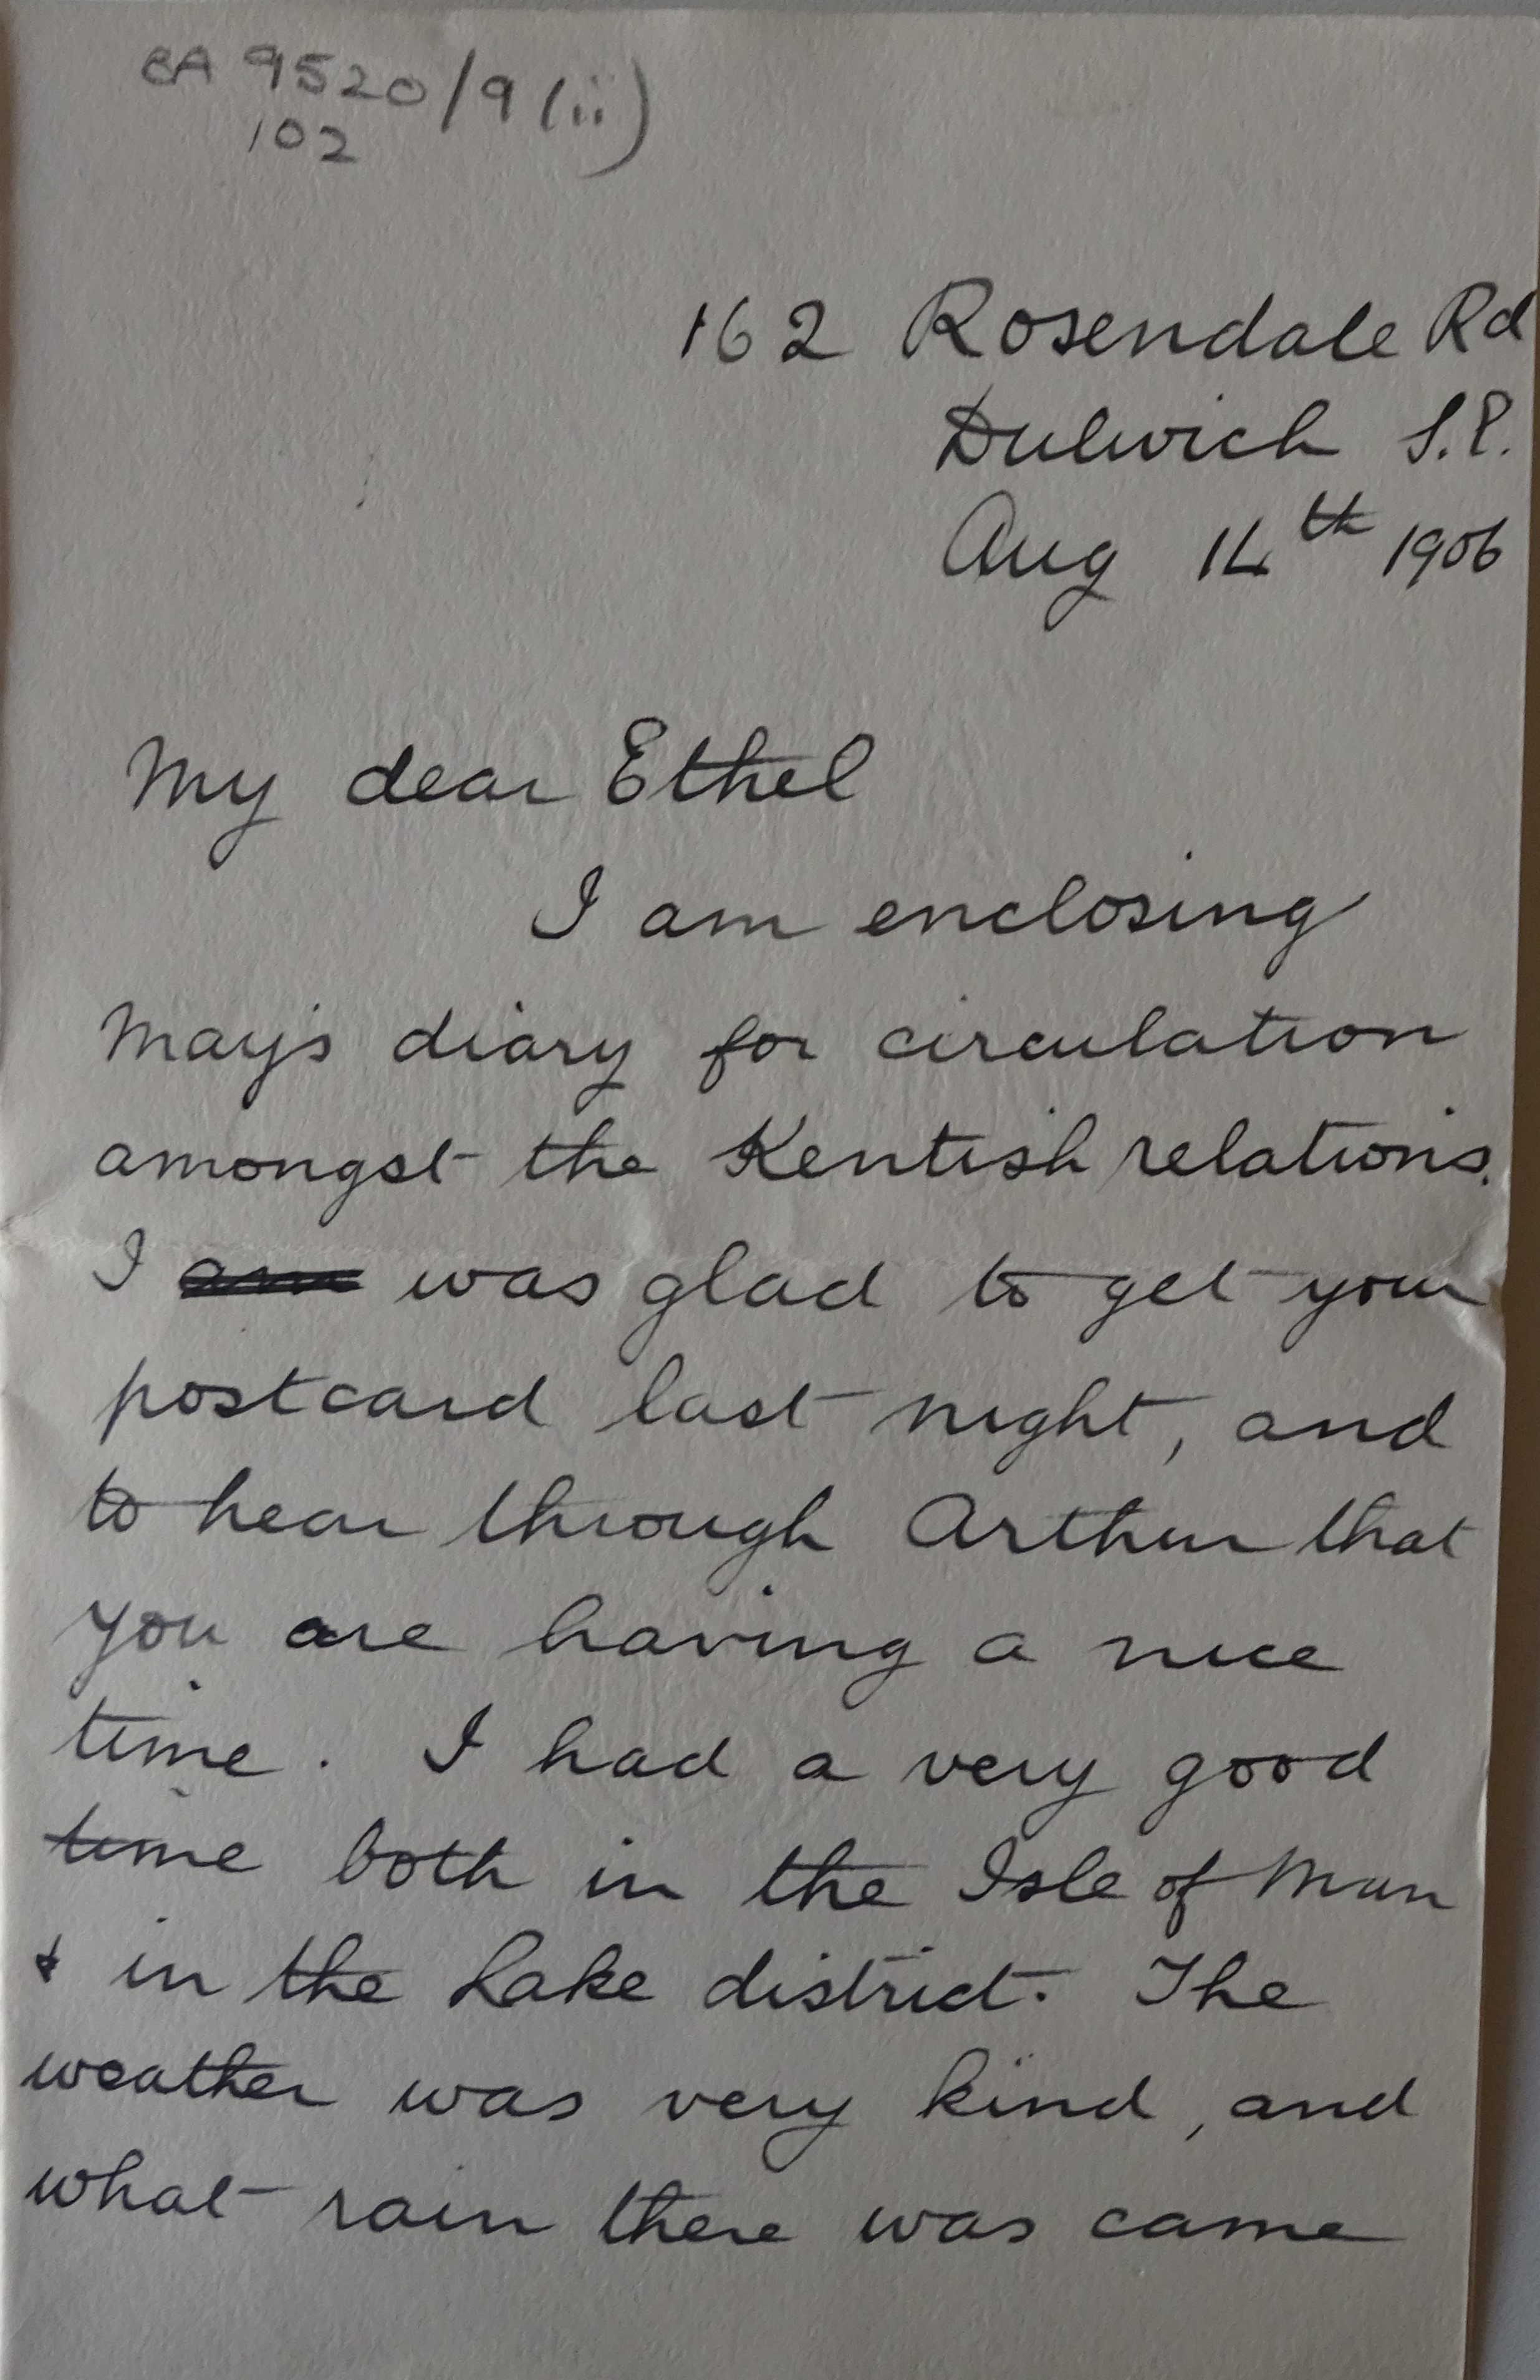 BA 9520/9(ii)
102
162 Rosendale Rd
Dulwich S.E.
Aug 14th 1906
My dear Ethel
I am enclosing
May's diary for circulation
amongst the Kentish relations.
I am was glad to get your
postcard last night, and
to hear through Arthur that
you are having a nice
time. I had a very good
time both in the Isle of Man
& in the Lake district. The
weather was very kind, and
what rain there was came